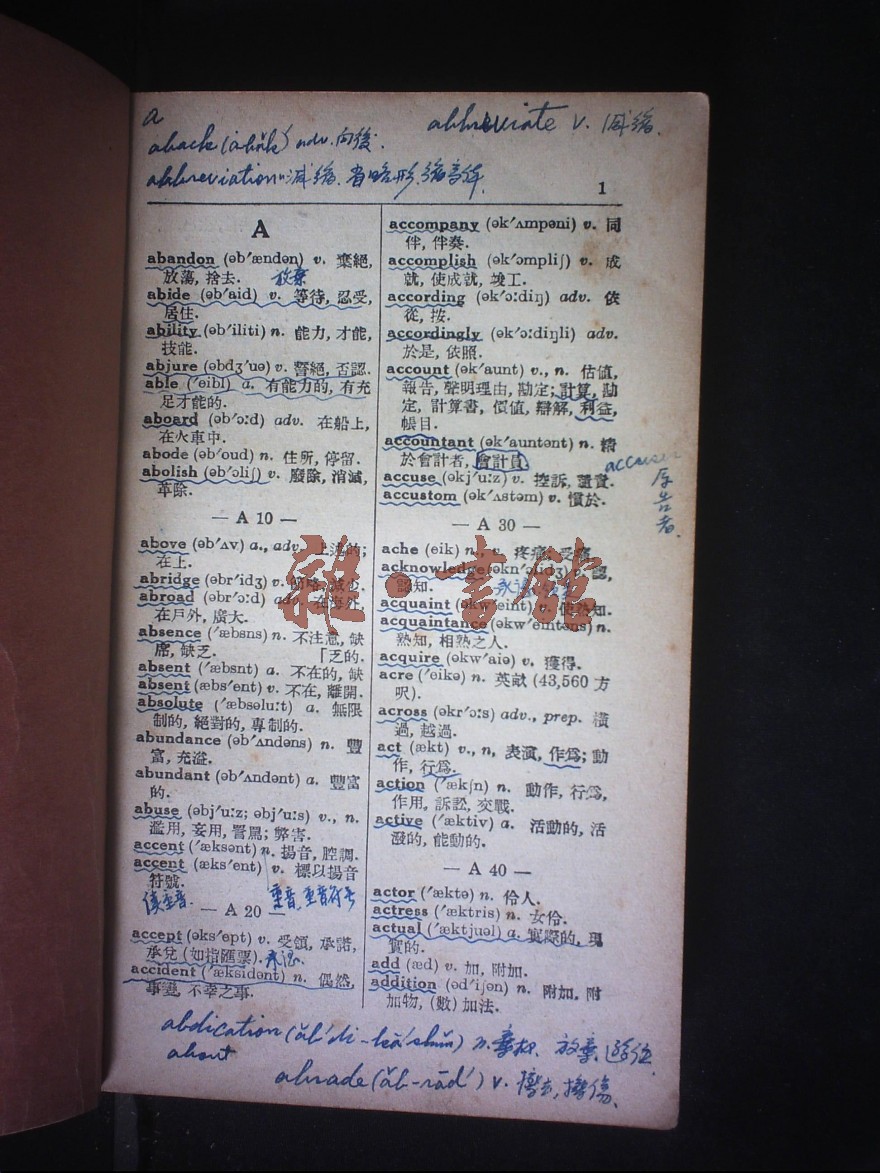 a
aback (ăbăk′) adv. 向後.
abbreviate v. 減縮.
abbreviation n. 減縮. 省略形.
1
A
abandon (əb′ændən) v. 棄絕,
放蕩, 捨去. 放棄
abide (əb′aid) v. 等待, 忍受,
居住.
ability (əb′iliti) n. 能力, 才能,
技能.
abjure (əbdʒ′uə) v. 誓絕, 否認.
able (′eibl) a. 有能力的, 有充
足才能的.
aboard (əb′ɔ:d) adv. 在船上,
在火車中.
abode (əb′oud) n. 住所, 停留.
abolish (əb′ɔliʃ) v. 廢除, 消滅,
革除.
— A 10 —
above (əb′ʌv) a., adv. 上述的;
在上.
abridge (əbr′idʒ) v. 節略, 減少.
abroad (əbr′ɔ:d) adv. 在海外,
在戶外, 廣大.
absence (′æbsns) n. 不注意, 缺
席, 缺乏. 「乏的.
absent (′æbsnt) a. 不在的, 缺
absent (æbs′ent) v. 不在, 離開.
absolute (′æbsəlu:t) a. 無限
制的, 絕對的, 專制的.
abundance (əb′ʌndəns) n. 豐
富, 充溢.
abundant (əb′ʌndənt) a. 豐富
的.
abuse (əbj′u:z; əbj′u:s) v., n.
濫用, 妄用, 詈罵; 弊害.
accent (′æksənt) n. 揚音, 腔調.
accent (æks′ent) v. 標以揚音
符號.
重音, 重音符号
— A 20 —
accept (əks′ept) v. 受領, 承諾,
承兌 (如指匯票). 承認.
accident (′æksidənt) n. 偶然,
事變, 不幸之事.
accompany (ək′ʌmpəni) v. 同
伴, 伴奏.
accomplish (ək′ɔmpliʃ) v. 成
就, 使成就, 竣工.
according (ək′ɔ:diŋ) adv. 依
從, 按.
accordingly (ək′ɔ:diŋli) adv.
於是, 依照.
account (ək′aunt) v., n. 估値,
報告, 聲明理由, 勘定; 計算, 勘
定, 計算書, 價值, 辯解, 利益,
帳目.
accountant (ək′auntənt) n. 精
於會計者, 會計員.
accuse (əkj′u:z) v. 控訴, 譴責.
accuser
原告者.
accustom (ək′ʌstəm) v. 慣於.
— A 30 —
ache (eik) n., v. 疼痛; 受痛.
acknowledge (əkn′ɔlidʒ) v. 認,
認知. 承認
acquaint (əkw′eint) v. 使熟知.
acquaintance (əkw′eintəns) n.
熟知, 相熟之人.
acquire (əkw′aiə) v. 獲得.
acre (′eikə) n. 英畝 (43,560 方
呎).
across (əkr′ɔ:s) adv., prep. 橫
過, 越過.
act (ækt) v., n, 表演, 作爲; 動
作, 行爲.
action (′ækʃn) n. 動作, 行爲,
作用, 訴訟, 交戰.
active (′æktiv) a. 活動的, 活
潑的, 能動的.
— A 40 —
actor (′æktə) n. 伶人.
actress (′æktris) n. 女伶.
actual (′æktjuəl) a. 實際的, 現
實的.
add (æd) v. 加, 附加.
addition (əd′iʃən) n. 附加, 附
加物, (數) 加法.
abdication (ăb′di-kā′shŭn) n. 棄权. 放棄.
about
abrade (ăb-rād′) v. 擦傷.
雜·書館